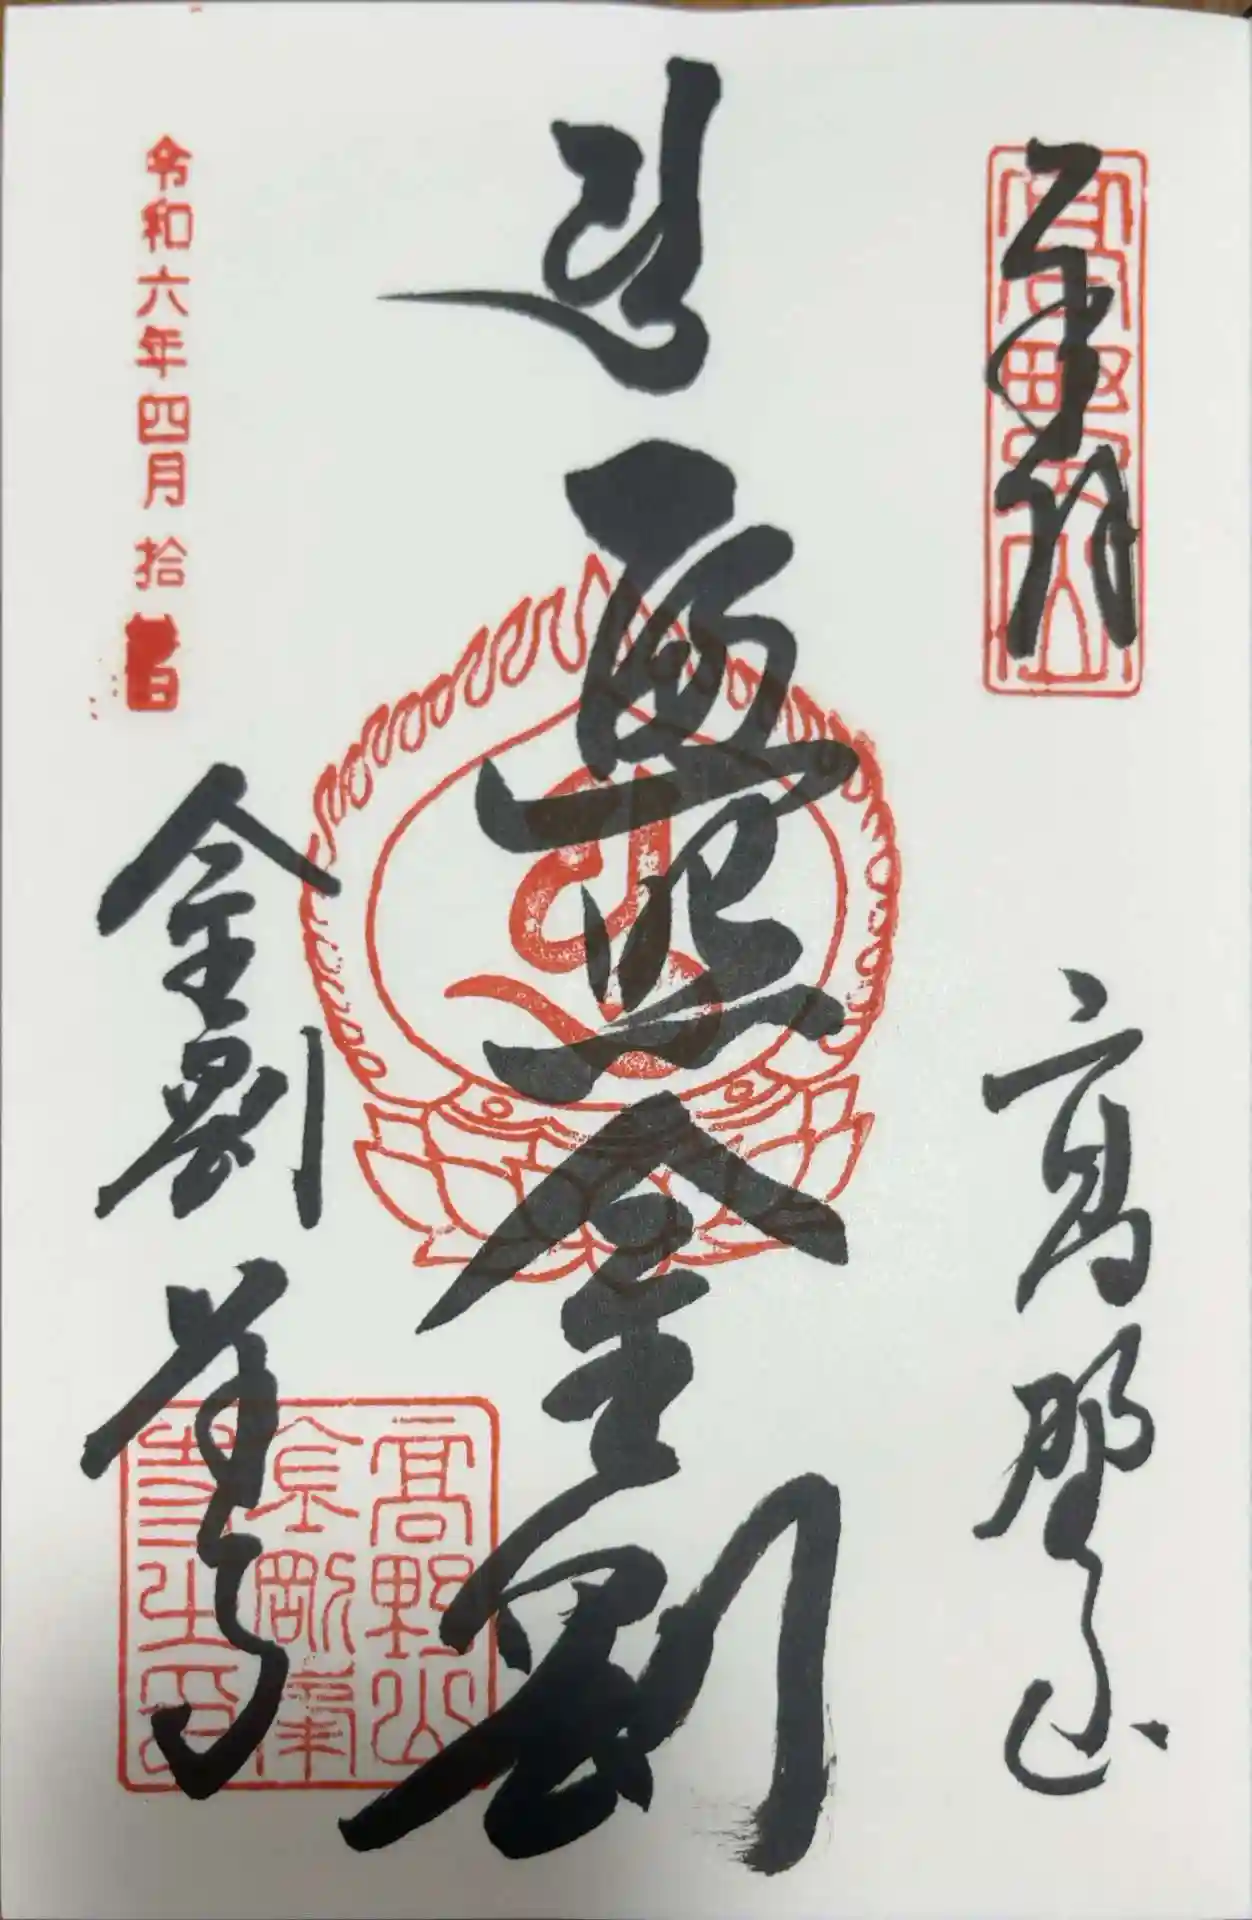 奉拝
高野山
高野山
遍照金剛
金剛峯寺
高野山
金剛峯
寺之印
令和六年四月拾